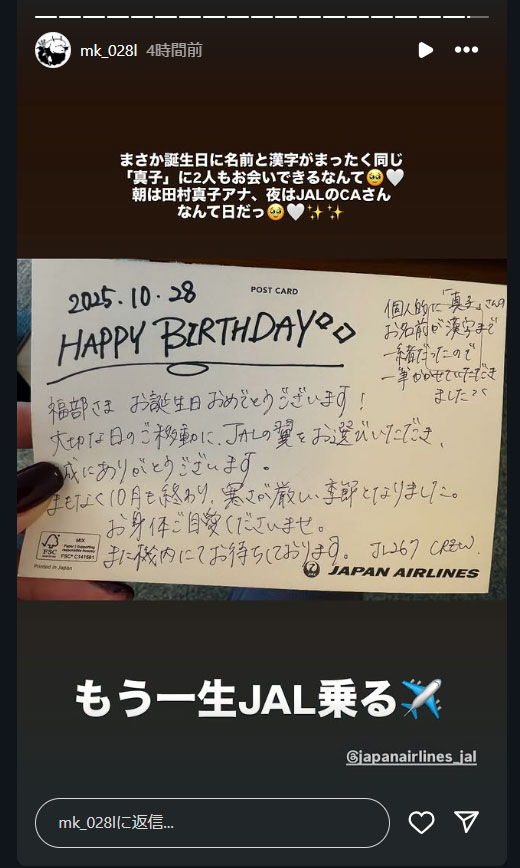 mk_028l 4時間前
まさか誕生日に名前と漢字がまったく同じ
「真子」に2人もお会いできるなんて🥹🤍
朝は田村真子アナ、夜はJALのCAさん
なんて日だっ🥹🤍✨✨
2025.10.28
POST CARD
HAPPY BIRTHDAY
個人的に「真子」さんの
お名前が漢字まで
一緒だったので
一筆かかせていただき
ました
福部さま お誕生日おめでとうございます!
大切な日のご移動に、JALの翼をお選びいただき、
誠にありがとうございます。
まもなく10月も終わり、寒さが厳しい季節となりました。
お身体ご自愛くださいませ。
また機内にてお待ちしております。 JL267 CREW.
MIX
FSC
Printed in Japan
JAPAN AIRLINES
もう一生JAL乗る✈️
@japanairlines_jal
mk_028lに返信...